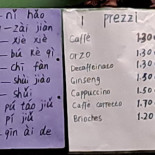 nǐ hǎo
zài jiàn
xiè xiè
bú kè qì
chī fàn
shuì jiào
shuǐ
pú táo jiǔ
pí jiǔ
qīn ài de
I prezzi
Caffè 1.30
orzo 1.30
Decaffeinato 1.30
Ginseng 1.50
Cappuccino 1.50
Caffè corretto 1.70
Brioches 1.20